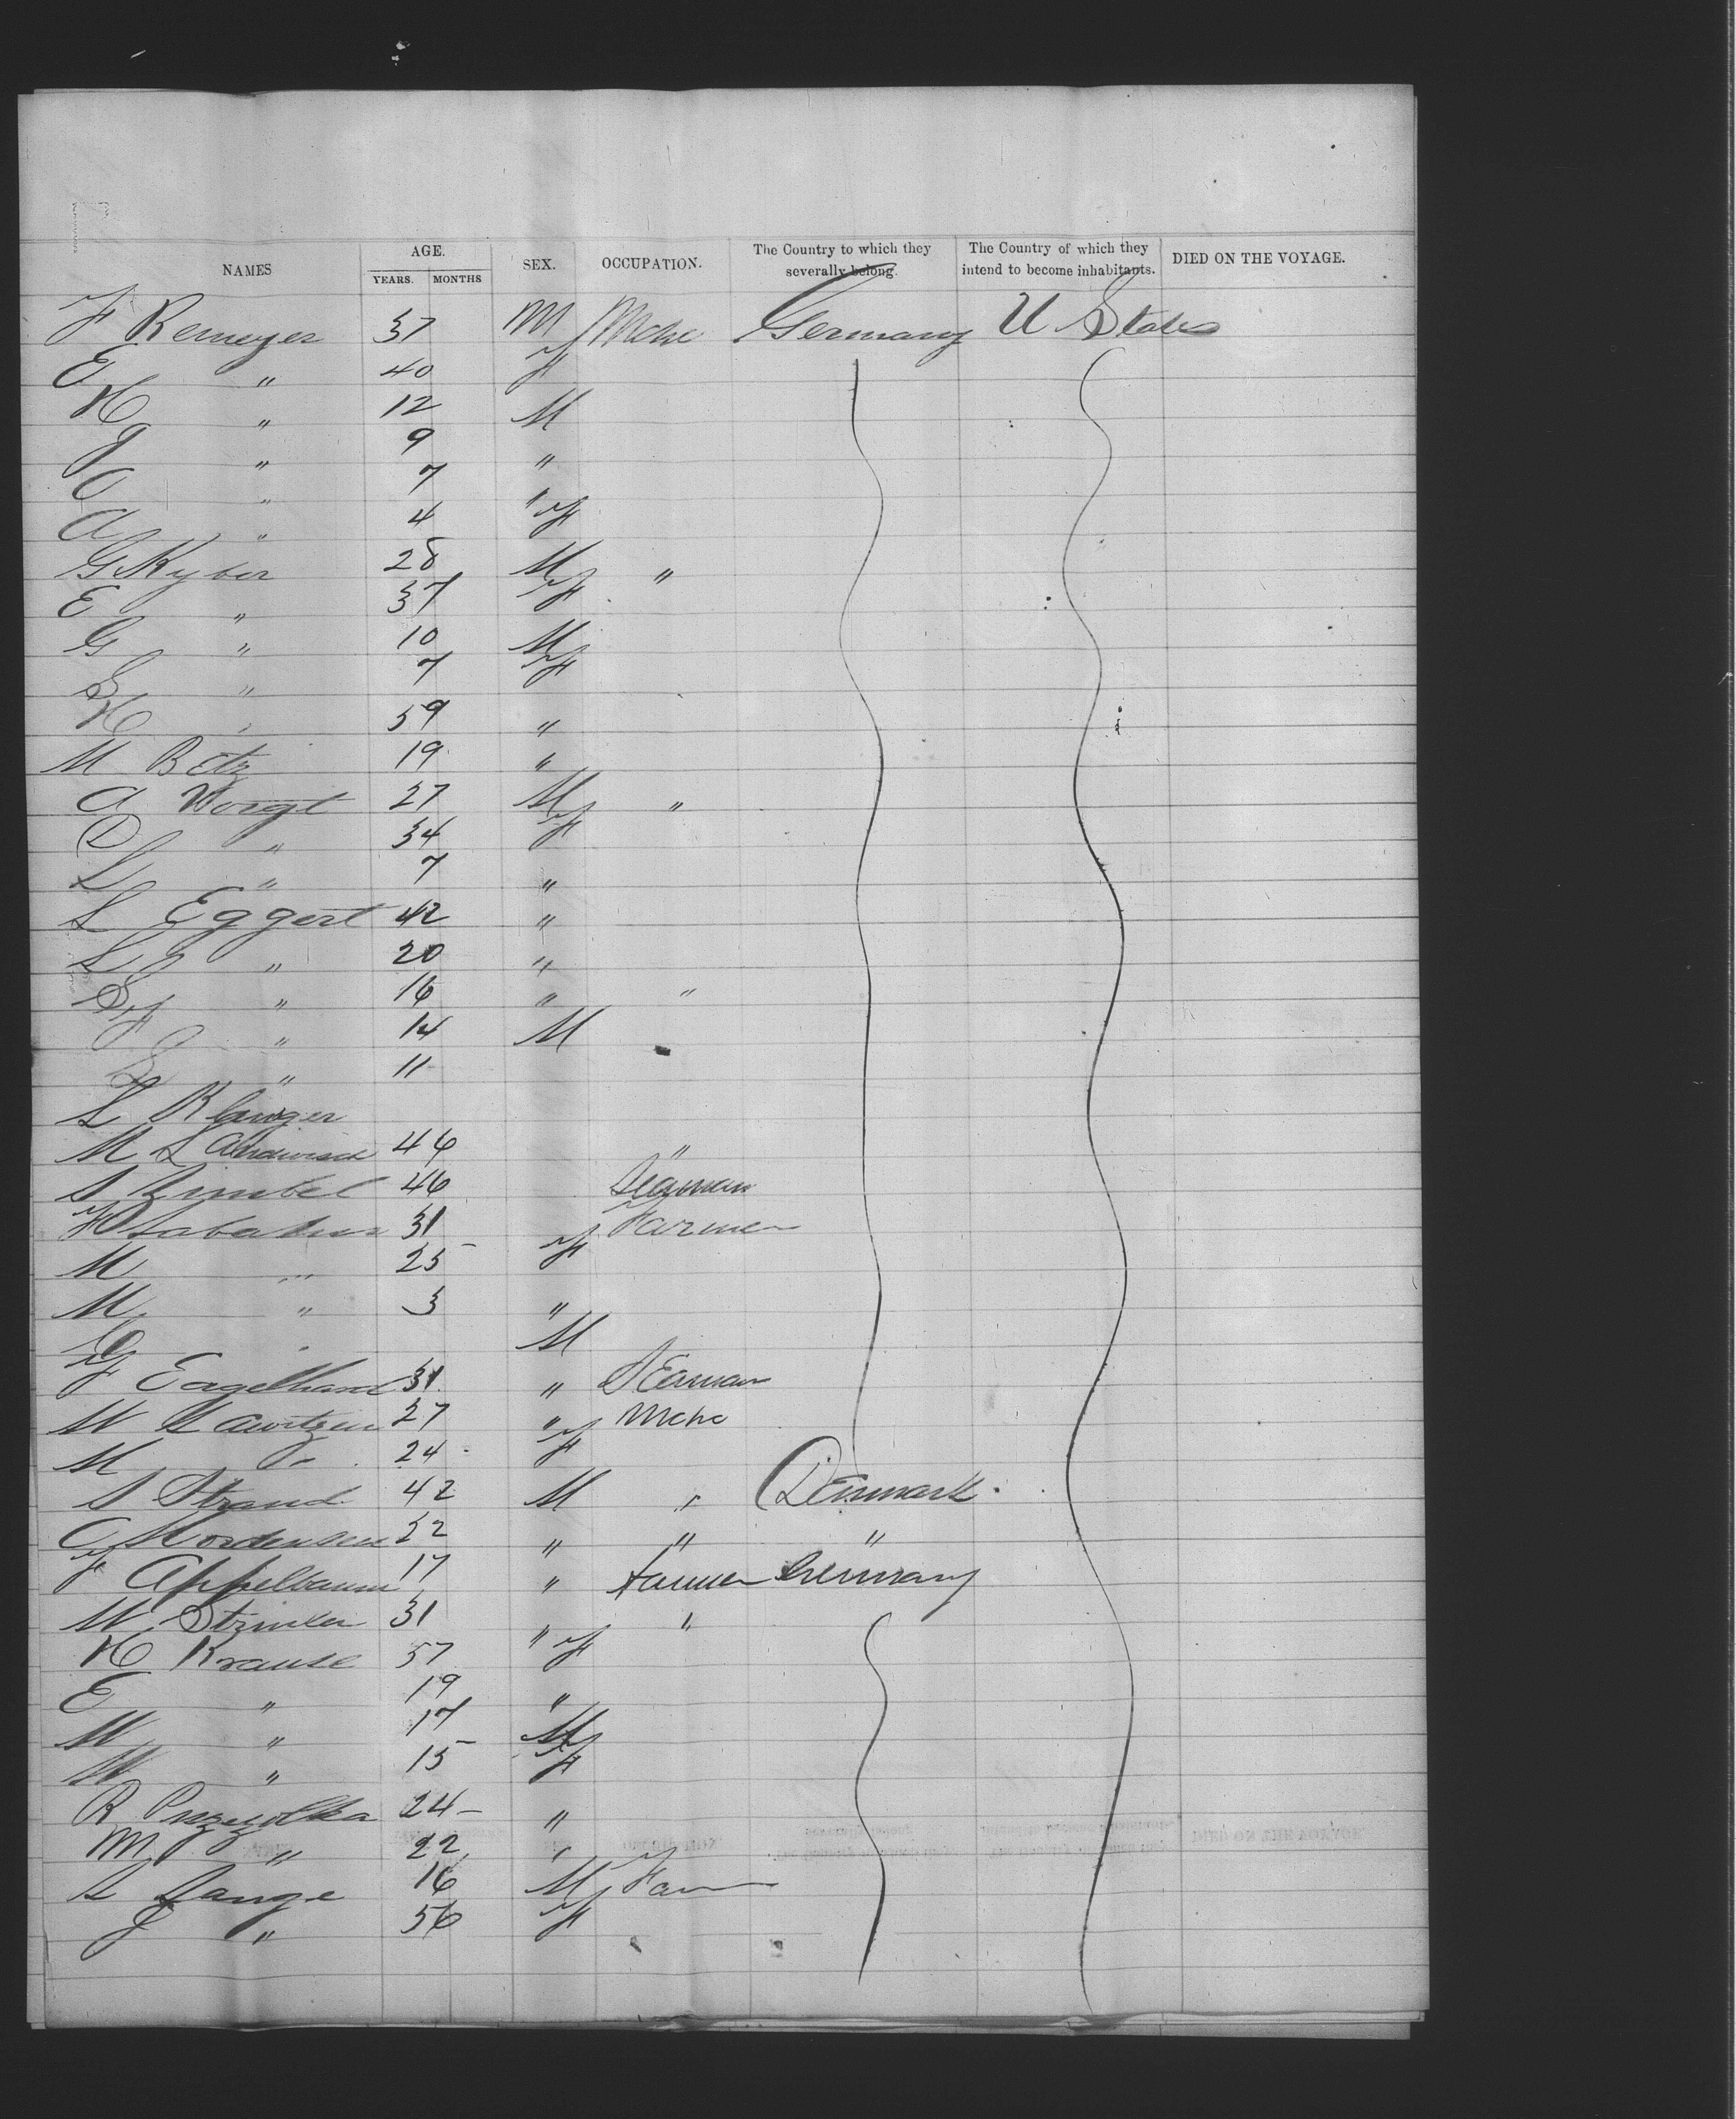 NAMES AGE. YEARS. MONTHS SEX. OCCUPATION. The Country to which they severally belong. The Country of which they intend to become inhabitants. DIED ON THE VOYAGE.
F Remeyer 37 M Mchc Germany U States
E " 40 F
H " 12 M
J " 9 "
C " 7 "
A " 4 F
G Kyber 28 M "
E " 37 F
G " 10 M
S " 7 F
H " 59 "
M Betz 19 "
A Voigt 27 M "
D " 34 F
L " 7 "
L Eggert 42 "
L " 20 "
S " 16 " "
F " 14 M
" 11
L
M 46 "
S Zimbel 46 Seaman
F 31 Farmer
M " 25 F
M " 3 "
G M
F Engelhard 31 " Seaman
W Lawitzen 27 " Mchc
M " 24 F
S Strand 42 M " Denmark
C Mordensen 22 " " "
F Appelbaum 17 " Farmer Germany
W 31 " "
H Krause 57 F
E " 19 "
W " 17 M
W " 15 F
R 24 "
M " 22 "
L Lange 16 M Farm
J " 56 F